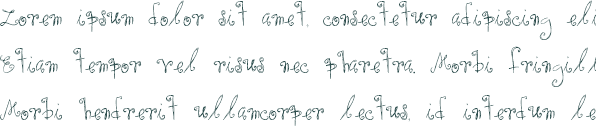 Lorem ipsum dolor sit amet, consectetur adipiscing eli
Etiam tempor vel risus nec pharetra. Morbi fringill
Morbi hendrerit ullamcorper lectus, id interdum le